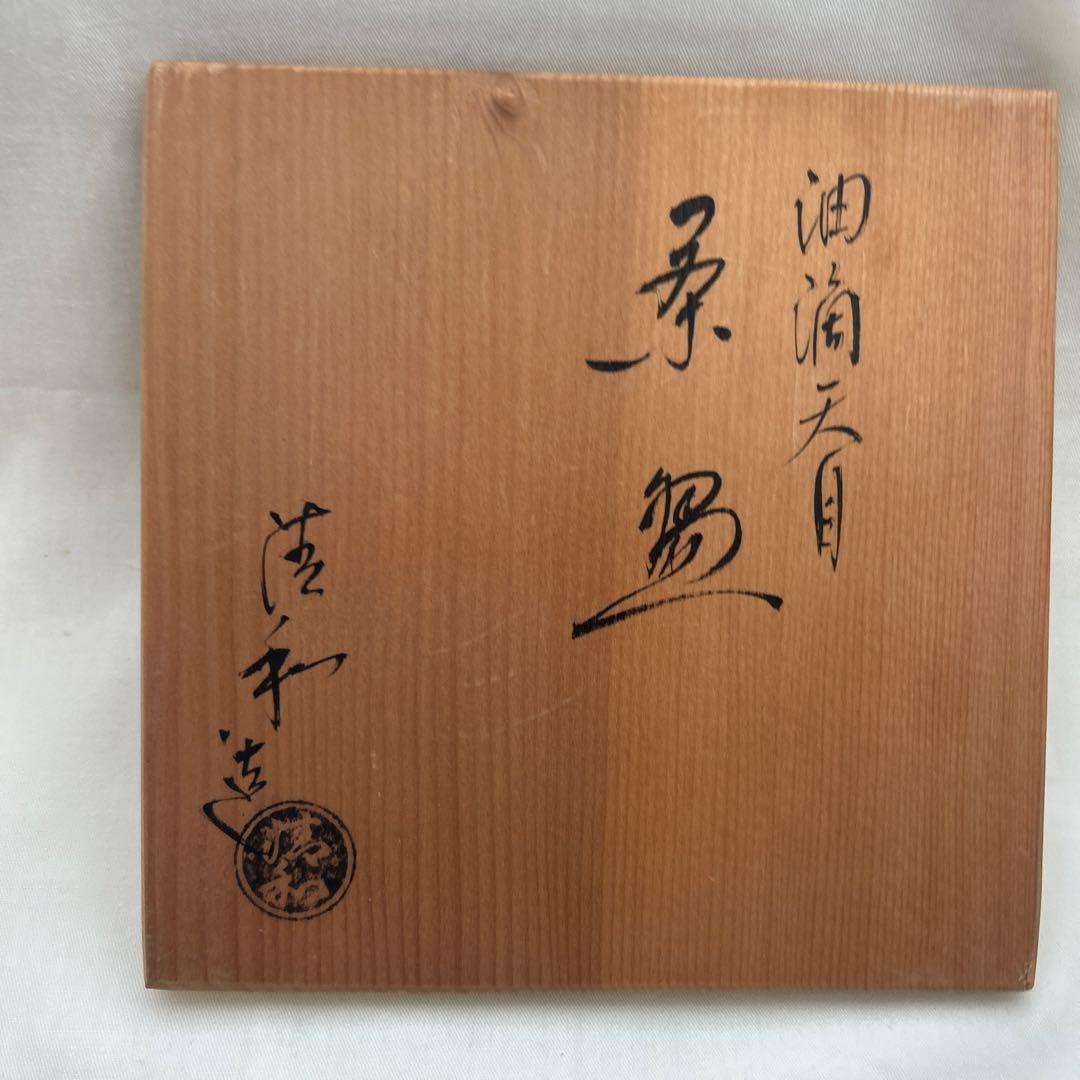 油滴天目
茶盌
清和造
清和